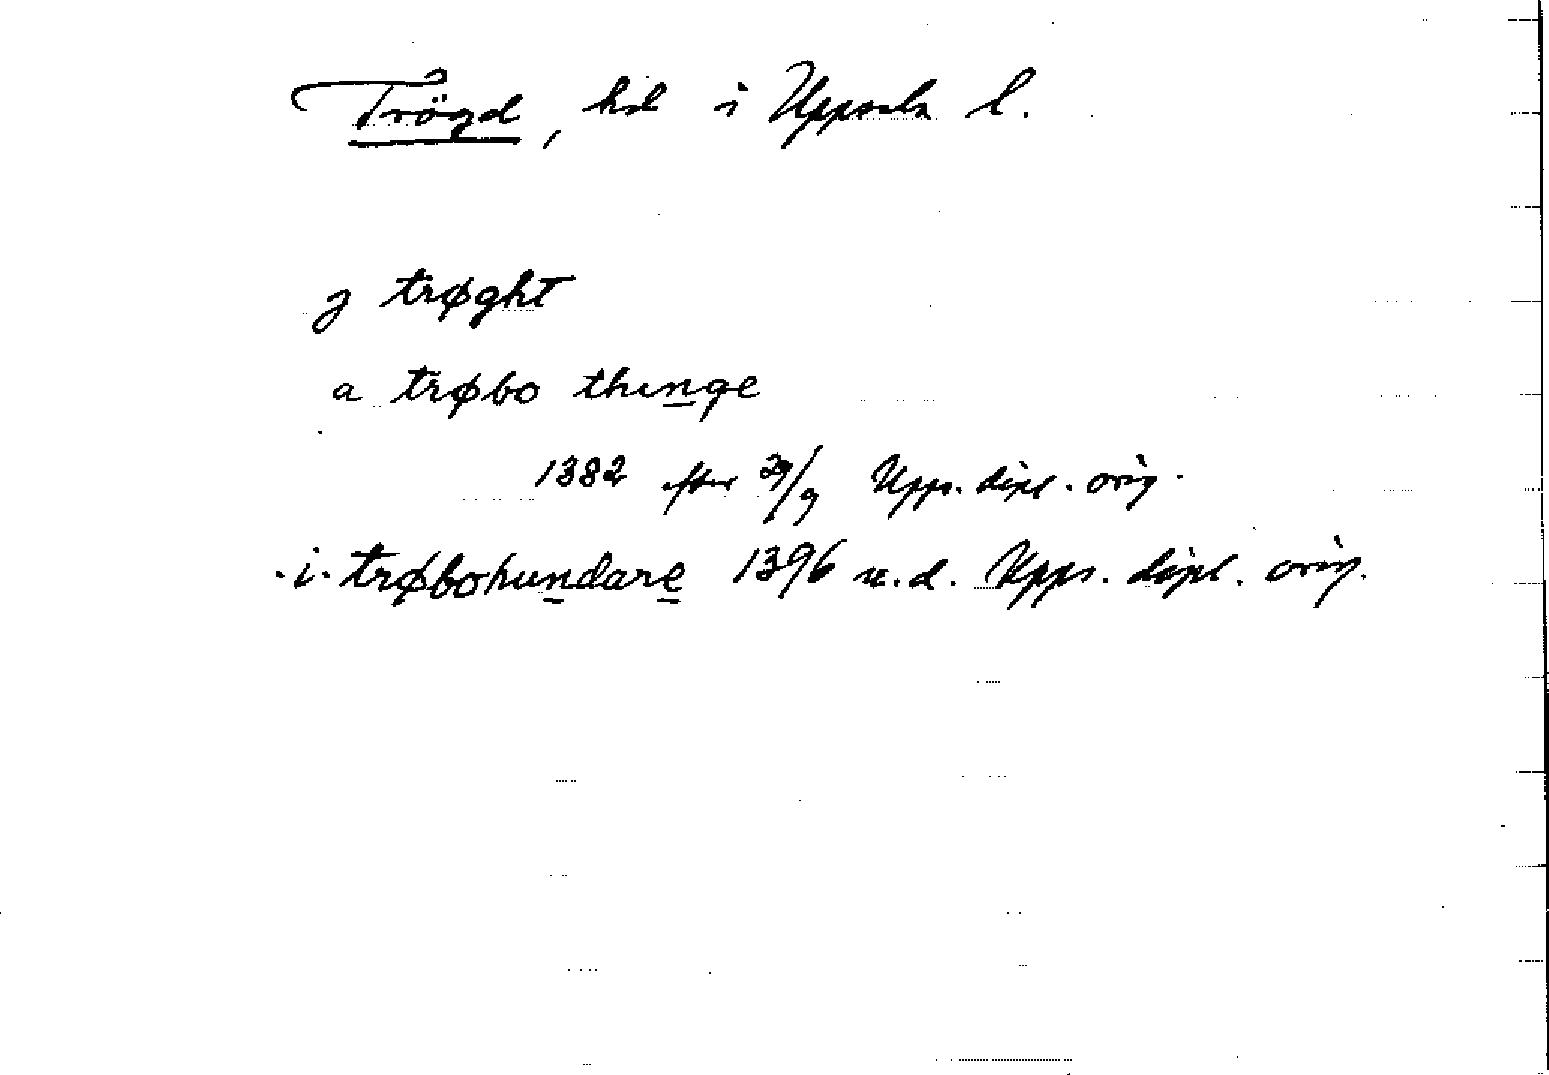 Trögd, hd i Uppsala l.
j trøght
a trøbo thinge
1382 efter 29/9 Upps. dipl. orig.
.i. trøbohundare 1396 u.d. Upps. dipl. orig.